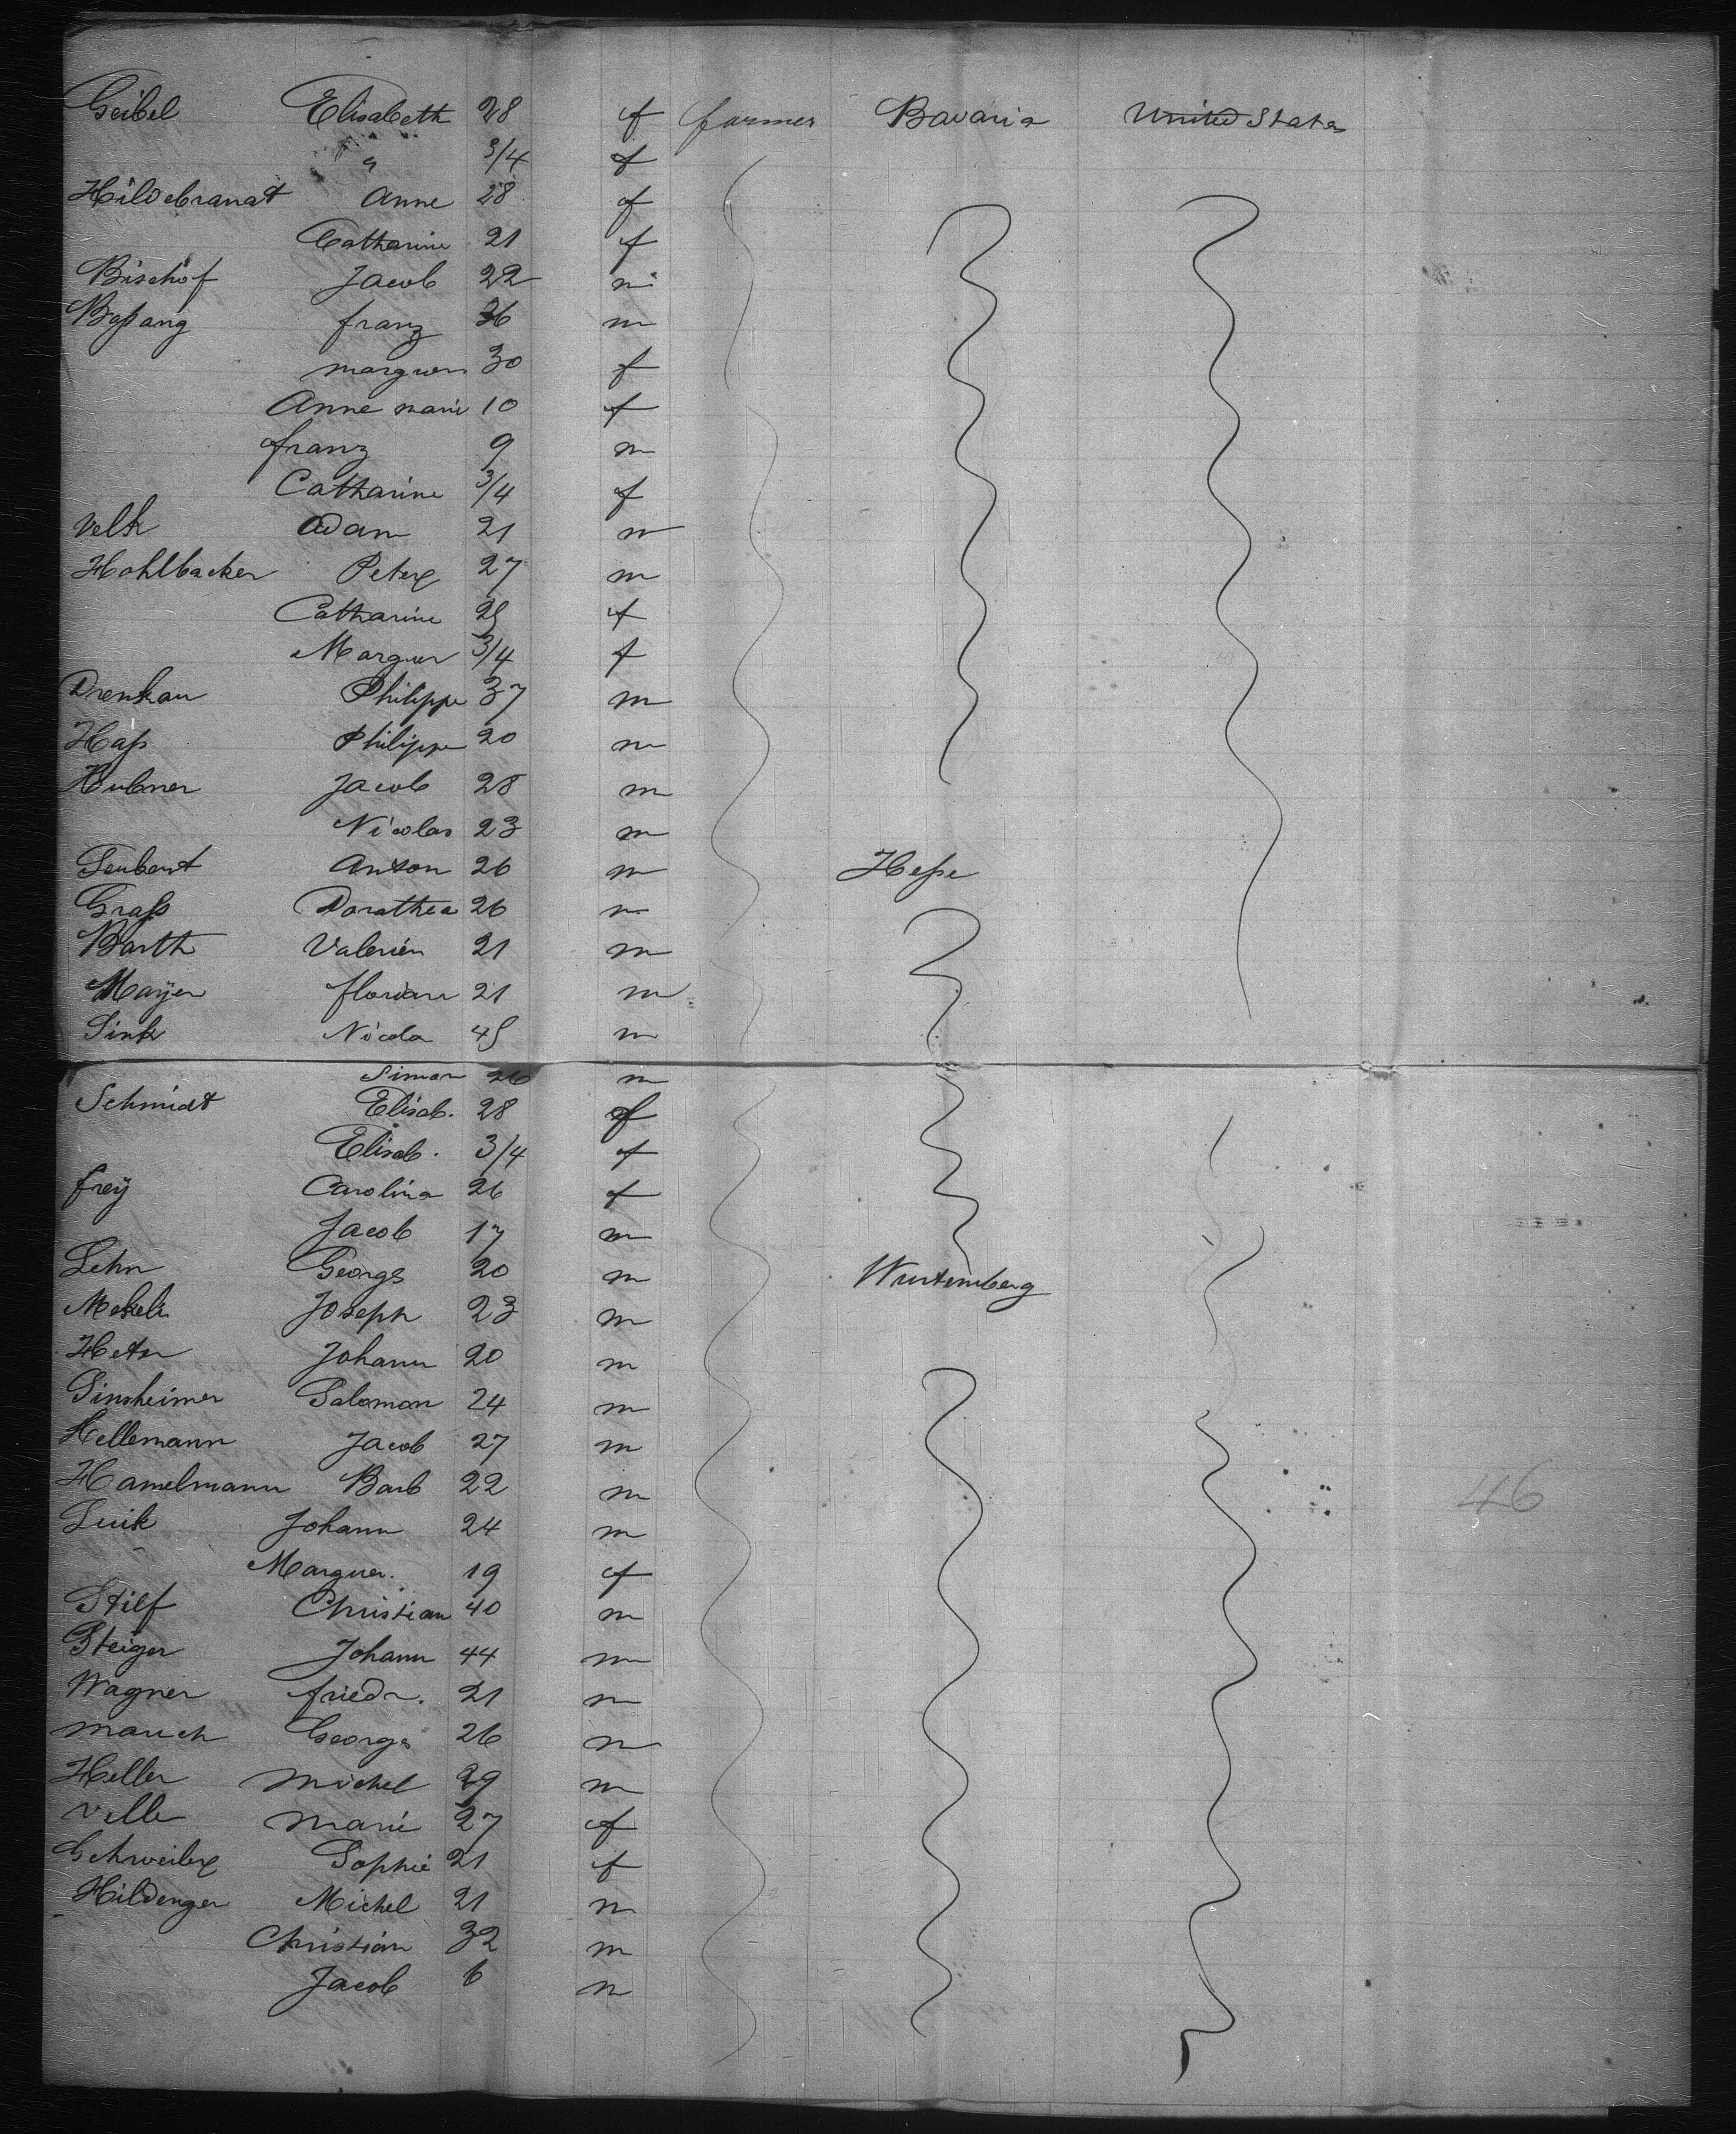 Geibel Elisabeth 28 f farmer Bavaria United States
" 3/4 f
Hildebrandt Anne 28 f
Catharine 21 f
Bischof Jacob 22 m
Baßang franz 36 m
marguer 30 f
Anne marie 10 f
franz 9 m
Catharine 3/4 f
Velk Adam 21 m
Hohlbacker Peter 27 m
Catharine 25 f
Marguer 3/4 f
Drenkau Philippe 37 m
Haß Philippe 20 m
Hubner Jacob 28 m
Nicolas 23 m
Anton 26 m Heße
Graß Dorathea 26 m
Barth Valerien 21 m
Mayer florian 21 m
Sink Nicola 45 m
Simon 26 m
Schmidt Elisab. 28 f
Elisab. 3/4 f
frey Carolina 26 f
Jacob 17 m
Lehn George 20 m Wurtemberg
Joseph 23 m
Johann 20 m
Sinsheimer Salomon 24 m
Hellemann Jacob 27 m
Hamelmann Barb 22 m
Johann 24 m
Marguer. 19 f
Stilf Christian 40 m
Steiger Johann 44 m
Wagner friedr. 21 m
mauch George 26 m
Heller michel 29 m
Velle marie 27 f
Sophie 21 f
Hildenger Michel 21 m
Christian 32 m
Jacob 6 m
46